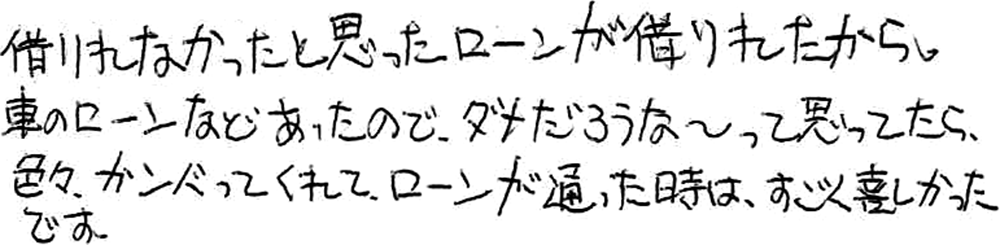 借りれなかったと思ったローンが借りれたから。
車のローンなどあったので、ダメだろうな〜って思ってたら、
色々、カンバってくれて、ローンが通った時は、すごく喜しかった
です。